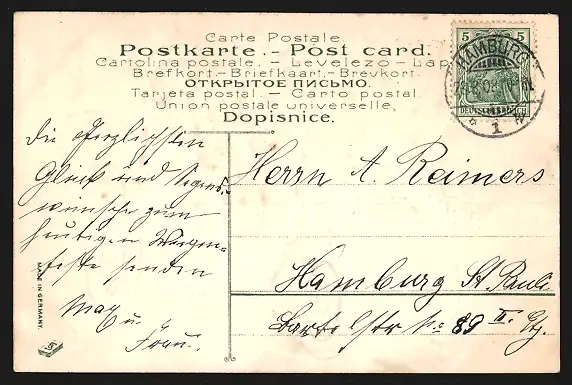 Carte Postale
Postkarte. - Post card.
Cartolina postale. - Levelezo - Lap
Brefkort. - Briefkaart. - Brevkort.
ОТКРЫТОЕ ПИСЬМО.
Tarjeta postal. - Carto postal.
Union postale universelle,
Dopisnice.
5 5
HAMBURG
DEUTSCHES REICH
* 1 *
Die herzlichsten
Glück und Segens-
wünsche zum
heutigen Wiegen-
feste senden
Max u.
Frau.
Herrn A. Reimers
Hamburg St. Pauli
Bartelsstr No 89 III. Etg.
MADE IN GERMANY.